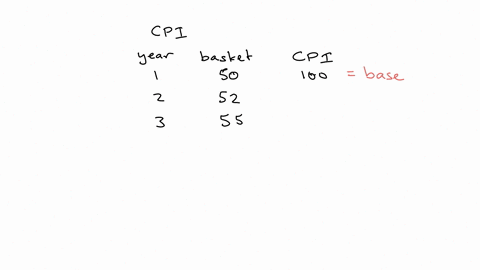 CPI
year basket CPI
1 50 100 = base
2 52
3 55